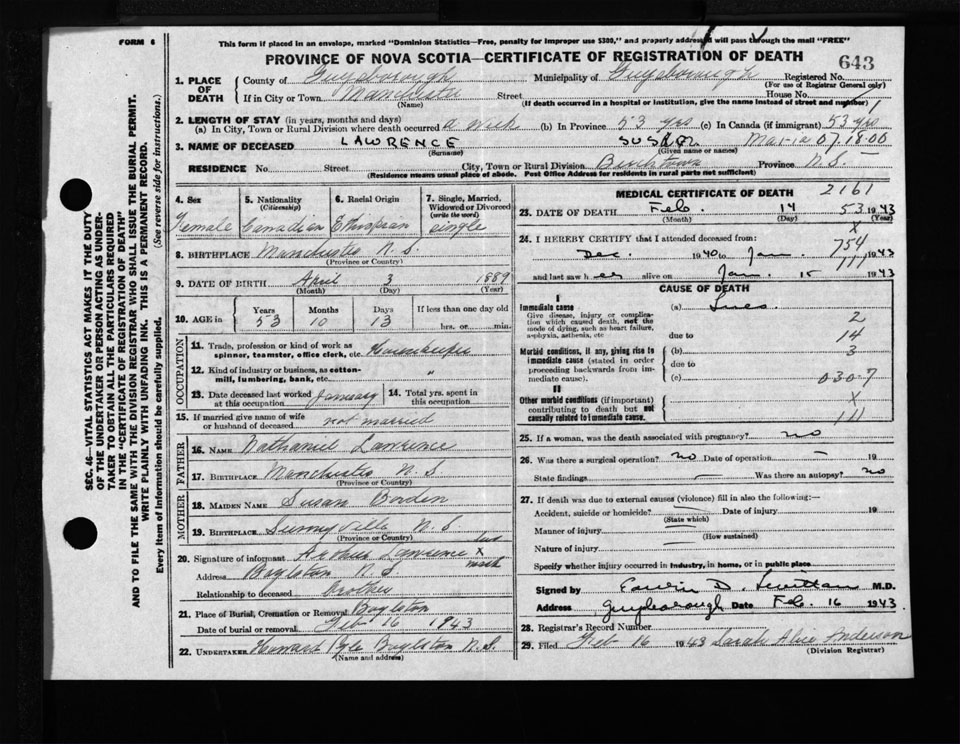 FORM 6
This form if placed in an envelope, marked "Dominion Statistics—Free, penalty for improper use $300," and properly addressed will pass through the mail "FREE"
PROVINCE OF NOVA SCOTIA—CERTIFICATE OF REGISTRATION OF DEATH
643
1. PLACE OF DEATH
County of Guysborough Municipality of Guysborough Registered No.
(For use of Registrar General only)
If in City or Town Manchester Street House No.
(Name) (If death occurred in a hospital or institution, give the name instead of street and number)
2. LENGTH OF STAY (in years, months and days)
(a) In City, Town or Rural Division where death occurred a week (b) In Province 53 yrs (c) In Canada (if immigrant) 53 yrs
3. NAME OF DECEASED LAWRENCE SUSAN Maria 07 18.00
(Surname) (Given name or names)
RESIDENCE No. Street City, Town or Rural Division Birchtown Province N.S.
(Residence means usual place of abode. Post Office Address for residents in rural parts not sufficient)
4. Sex Female
5. Nationality (Citizenship) Canadian
6. Racial Origin Ethiopian
7. Single, Married, Widowed or Divorced (write the word) Single
8. BIRTHPLACE Manchester N.S.
(Province or Country)
9. DATE OF BIRTH April 3 1889
(Month) (Day) (Year)
10. AGE in Years 53 Months 10 Days 13 If less than one day old hrs. or min.
OCCUPATION
11. Trade, profession or kind of work as spinner, teamster, office clerk, etc. Housekeeper
12. Kind of industry or business, as cotton-mill, lumbering, bank, etc. "
23. Date deceased last worked at this occupation January
14. Total yrs. spent in this occupation
15. If married give name of wife or husband of deceased not married
FATHER
16. NAME Nathaniel Lawrence
17. BIRTHPLACE Manchester N.S
(Province or Country)
MOTHER
18. MAIDEN NAME Susan Borden
19. BIRTHPLACE Sunnyville N.S
(Province or Country)
20. Signature of informant Lawrence X
his mark
Address Boylston N.S
Relationship to deceased brother
21. Place of Burial, Cremation or Removal Boylston
Date of burial or removal Feb 16 1943
22. UNDERTAKER Howard Pyle Boylston N.S.
(Name and address)
MEDICAL CERTIFICATE OF DEATH
2161
23. DATE OF DEATH Feb. 14 53 1943
(Month) (Day) (Year)
x
24. I HEREBY CERTIFY that I attended deceased from:
754
Dec. 1940 to Jan. 111 1943
and last saw her alive on Jan. 15 1943
CAUSE OF DEATH
I
Immediate cause
Give disease, injury or complication which caused death, not the mode of dying, such as heart failure, asphyxia, asthenia, etc
(a) Lues.
2
due to 14
Morbid conditions, if any, giving rise to immediate cause (stated in order proceeding backwards from immediate cause).
(b) 3
due to
(c) 0307
II
Other morbid conditions (if important) contributing to death but not causally related to immediate cause.
x
111
25. If a woman, was the death associated with pregnancy? no
26. Was there a surgical operation? no Date of operation — 19
State findings Was there an autopsy? no
27. If death was due to external causes (violence) fill in also the following:—
Accident, suicide or homicide? Date of injury 19
(State which)
Manner of injury
(How sustained)
Nature of injury
Specify whether injury occurred in industry, in home, or in public place
Signed by Edwin D. M.D.
Address Guysborough Date Feb. 16 1943
28. Registrar's Record Number
29. Filed Feb 16 1943 Sarah Alice Anderson
(Division Registrar)
SEC. 46—VITAL STATISTICS ACT MAKES IT THE DUTY
OF THE UNDERTAKER OR PERSON ACTING AS UNDER-
TAKER TO OBTAIN ALL THE PARTICULARS REQUIRED
IN THE "CERTIFICATE OF REGISTRATION OF DEATH"
AND TO FILE THE SAME WITH THE DIVISION REGISTRAR WHO SHALL ISSUE THE BURIAL PERMIT.
WRITE PLAINLY WITH UNFADING INK. THIS IS A PERMANENT RECORD.
Every item of information should be carefully supplied. (See reverse side for instructions.)